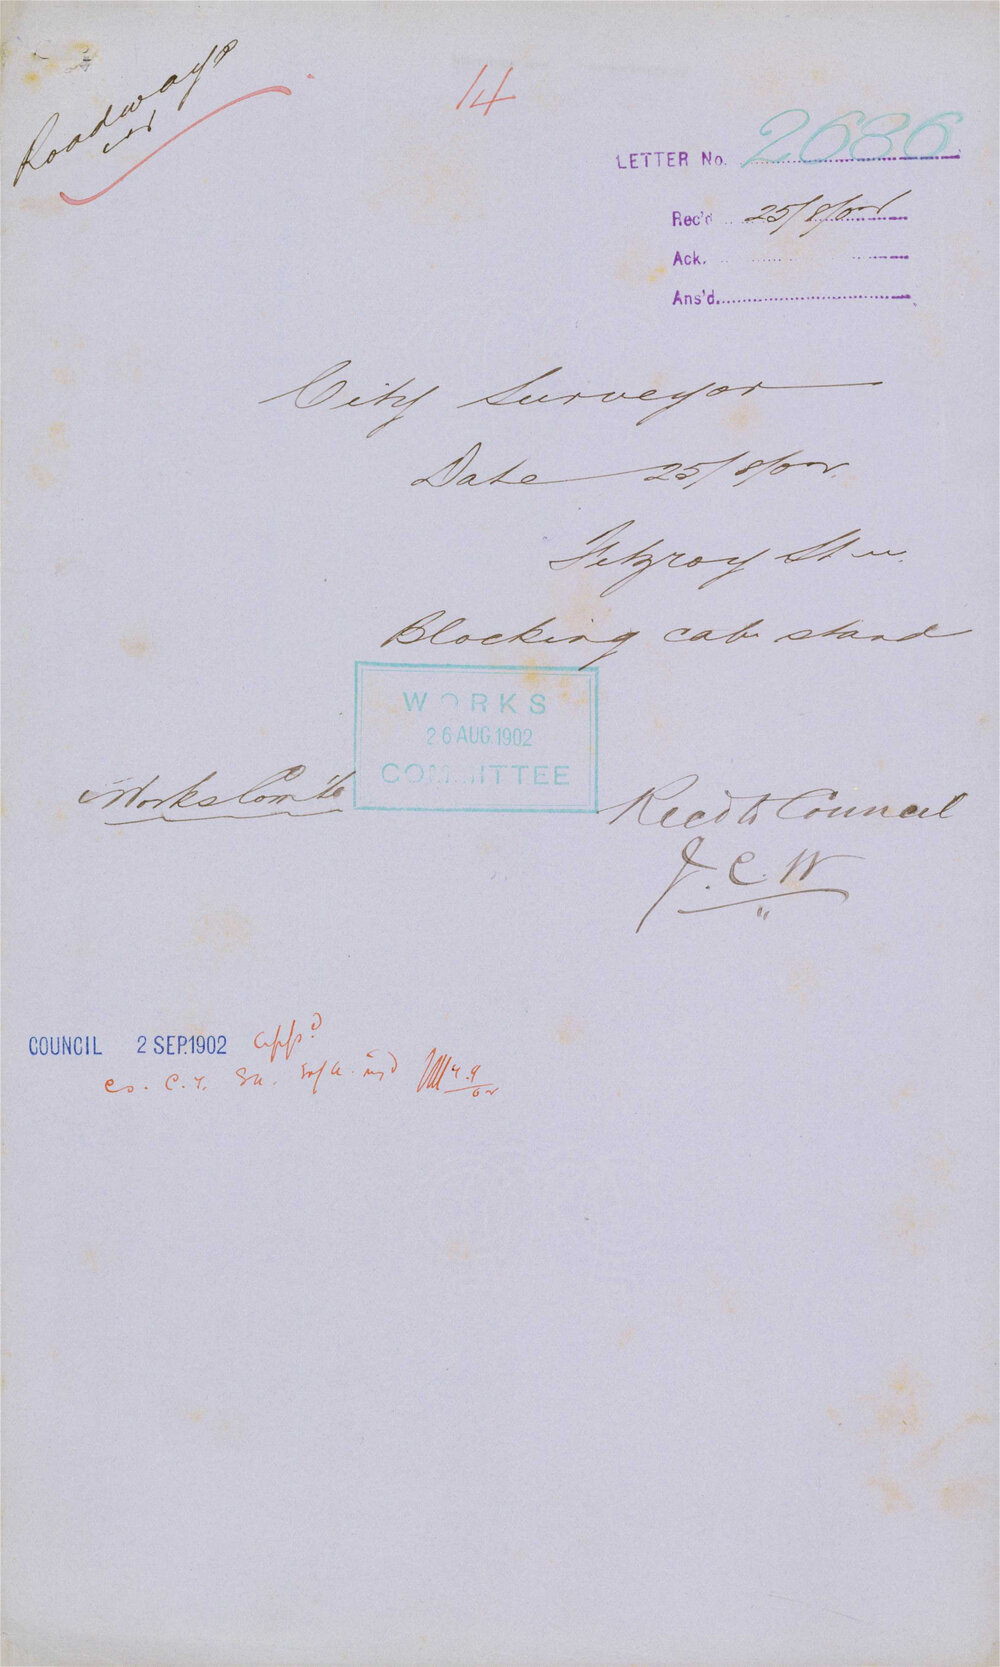 Roadways
14
LETTER No. 2686
Rec'd 25/8/02
Ack.
Ans'd.
City Surveyor
Date 25/8/02.
Fitzroy St
Blocking cab stand
WORKS
26 AUG. 1902
COMMITTEE
Works Comte
Recd to Council
J. C. W
COUNCIL 2 SEP. 1902 appd